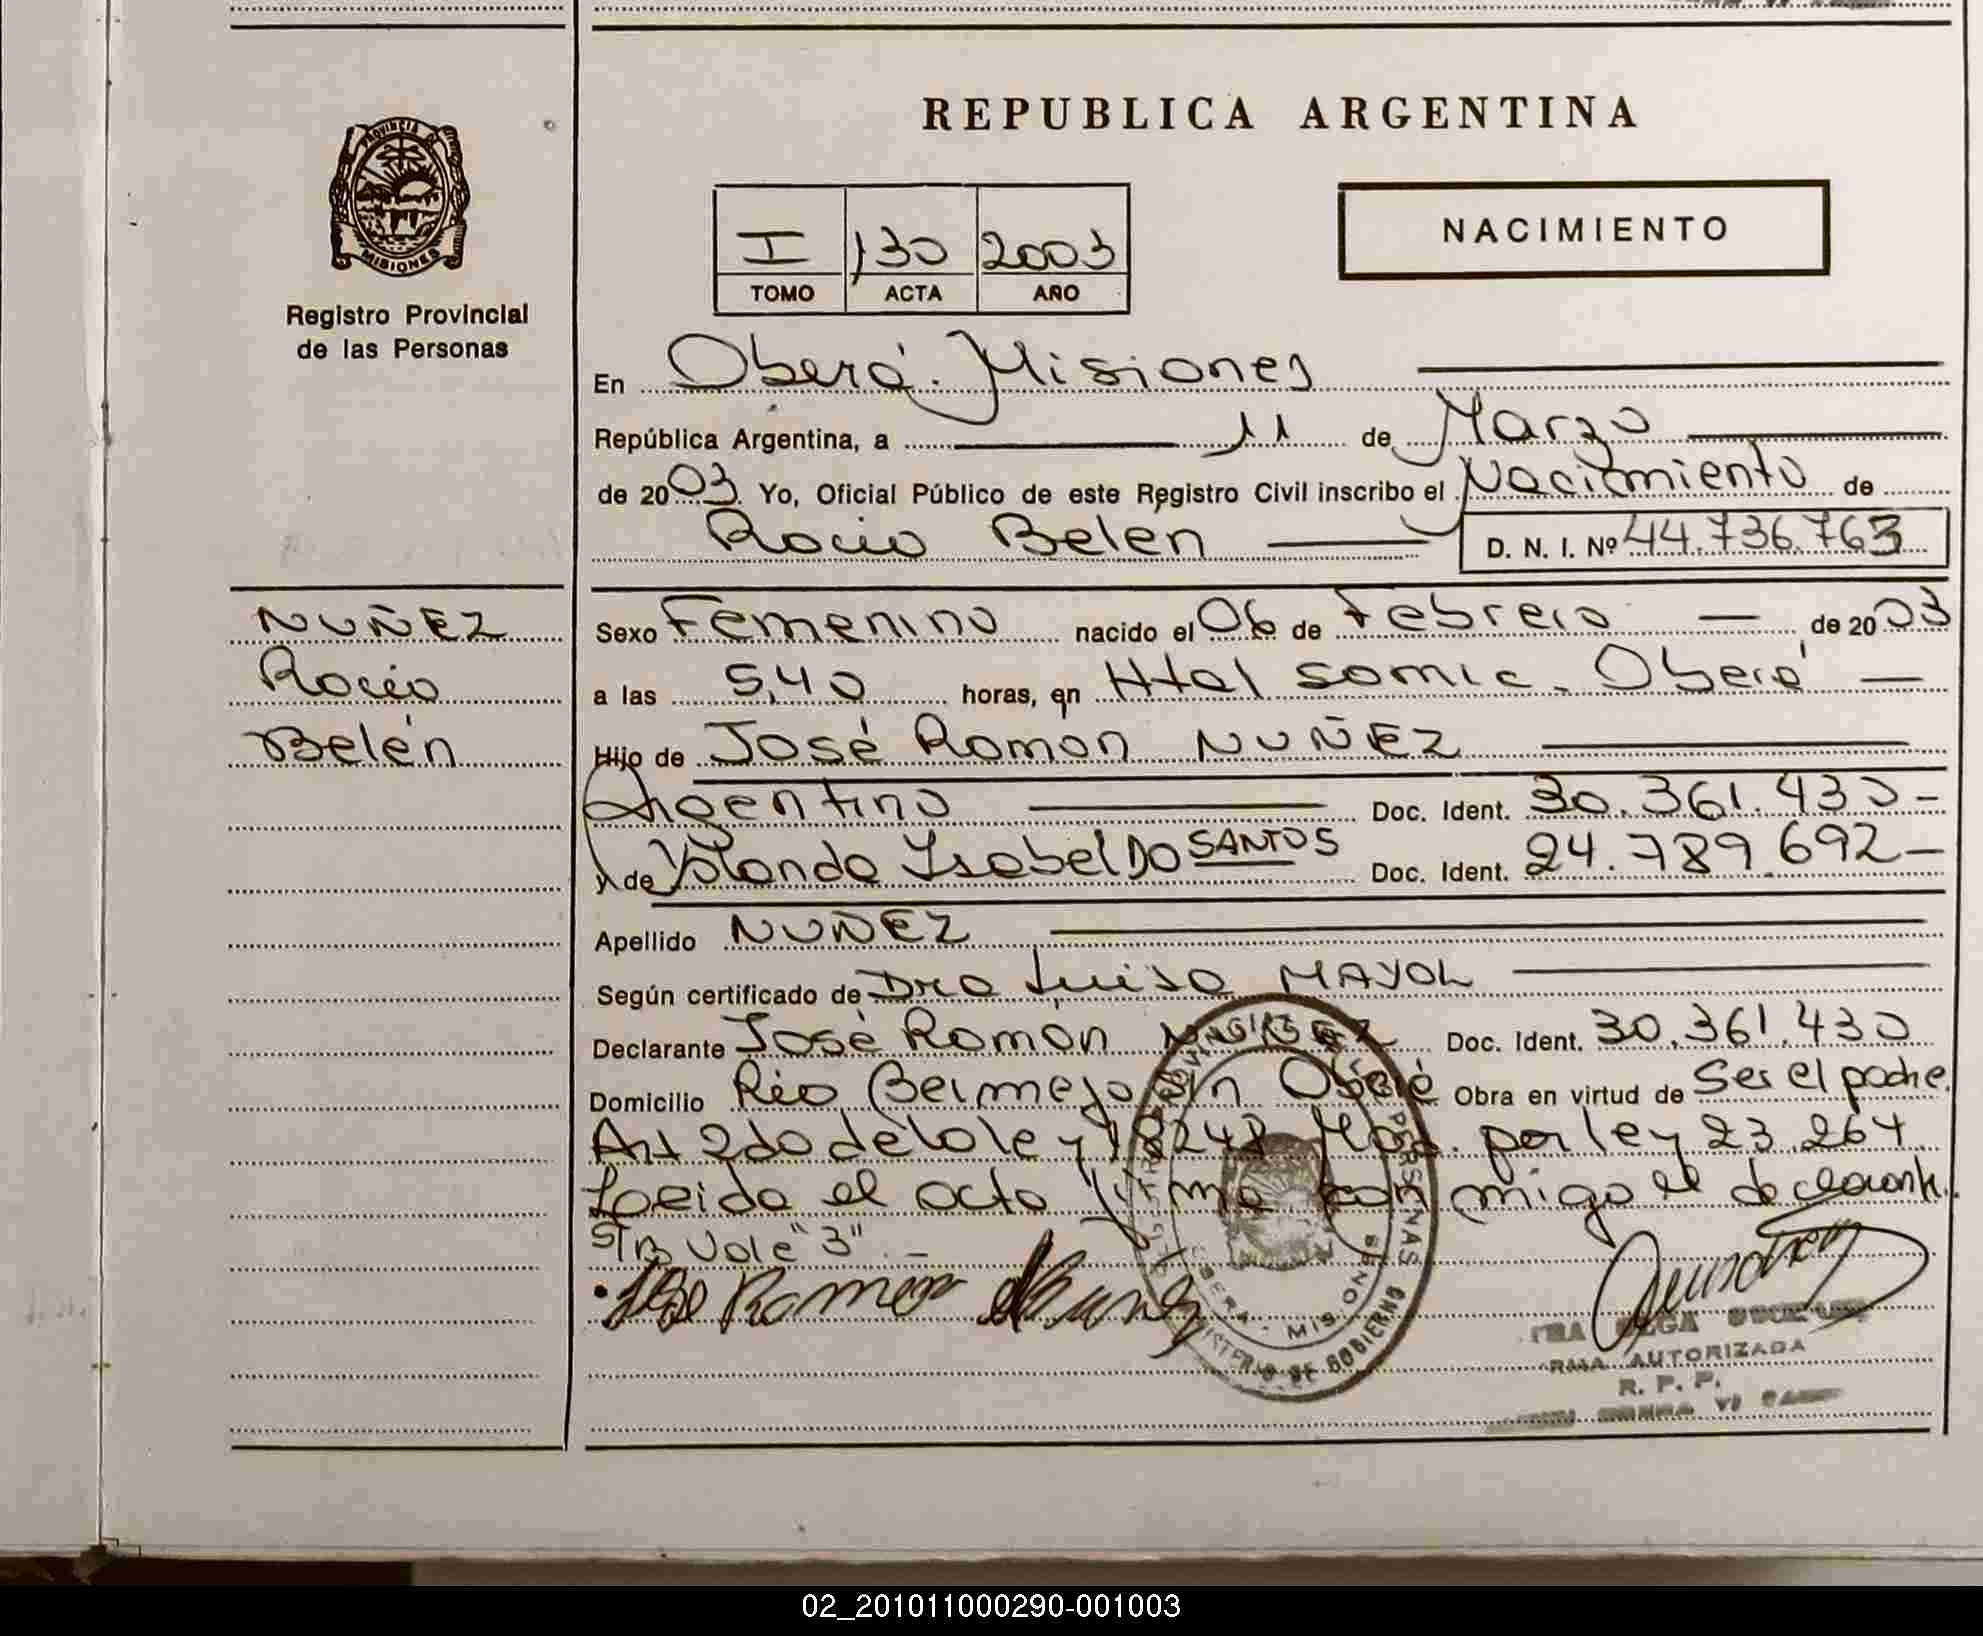 REPUBLICA ARGENTINA
PROVINCIA DE
MISIONES
Registro Provincial
de las Personas
I 130 2003
TOMO ACTA AÑO
NACIMIENTO
En Oberá. Misiones
República Argentina, a 11 de Marzo
de 2003. Yo, Oficial Público de este Registro Civil inscribo el Nacimiento de
Rocio Belén D. N. I. Nº 44.736.763
NUÑEZ
Rocio
Belén
Sexo Femenino nacido el 06 de Febrero de 2003
a las 5,40 horas, en Htal Samic. Oberá
Hijo de José Ramon NUÑEZ
Argentino Doc. Ident. 30.361.430-
y de Yolanda Isabel DO SANTOS Doc. Ident. 24.789.692-
Apellido NUÑEZ
Según certificado de Dra Luisa MAYOL
Declarante José Ramón NUÑEZ Doc. Ident. 30.361.430
Domicilio Rio Bermejo s/n Oberá Obra en virtud de Ser el padre.
Art 2do de la ley 18248 Mod. por ley 23.264
Leida el acta firma con migo el declarante.
S/rs Vale "3".-
Jose Ramón Nunez
OBERA - MISIONES
MINISTERIO DE GOBIERNO
OLGA
FIRMA AUTORIZADA
R. P. P.
02_201011000290-001003